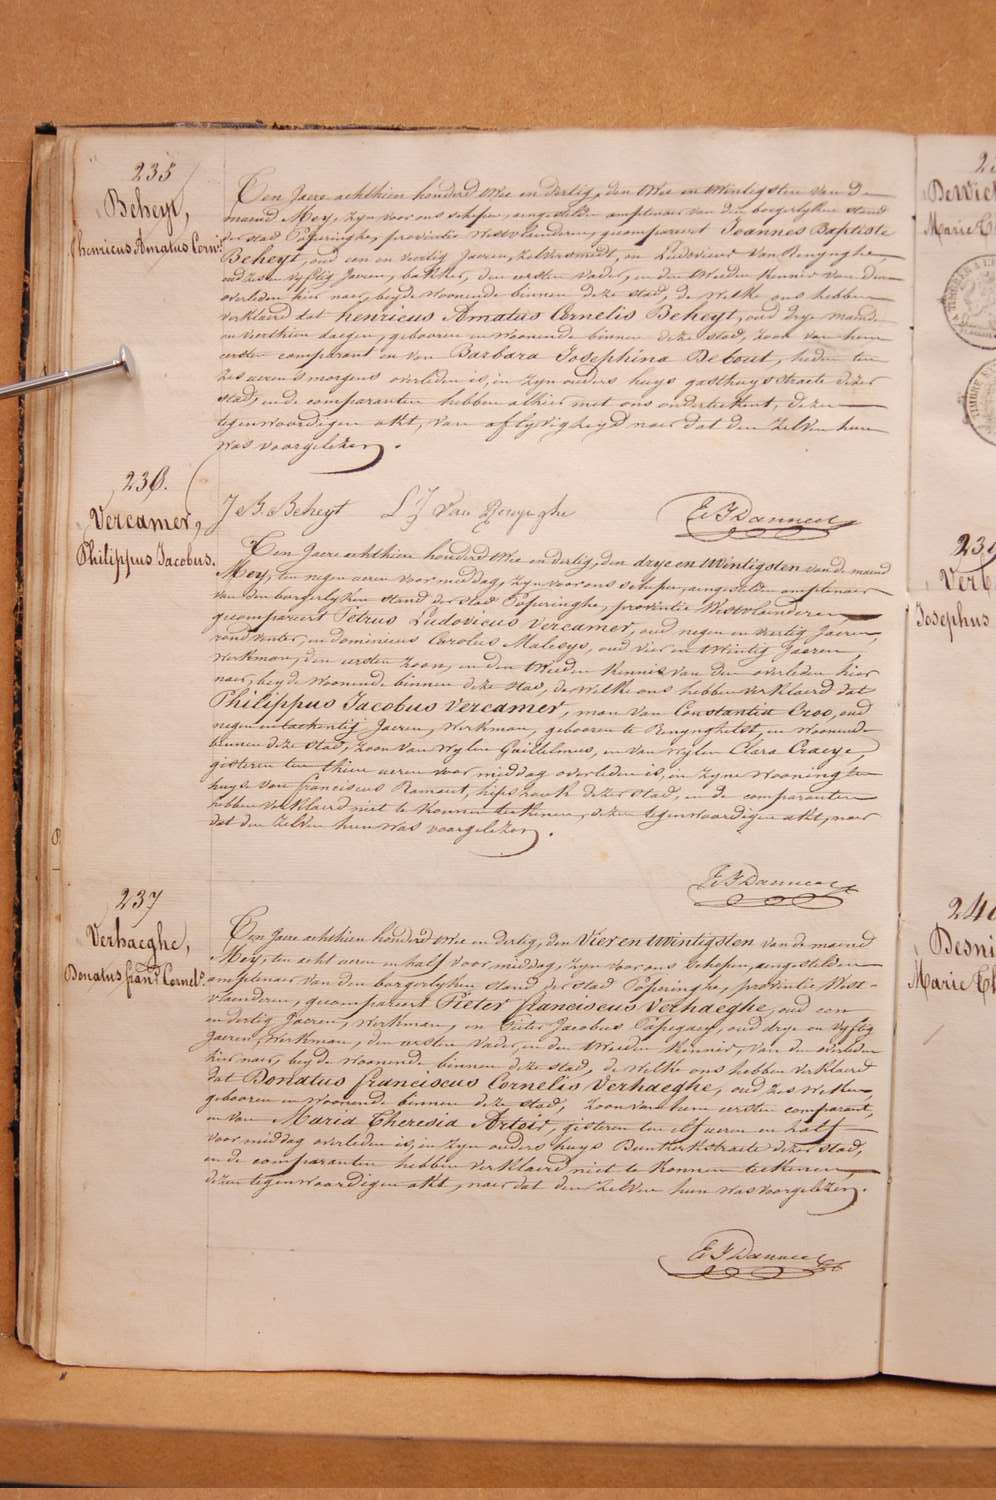 235
Beheyt,
henricus Amatus Corn.s
Ten Jaere achthien honderd twee en dertig, den twee en twintigsten van de
maend Mey, zyn voor ons schepen, aengestelden amptenaer van den borgerlyken stand
der stad Poperinghe, provintie Westvlaenderen, gecompareert Joannes Baptiste
Beheyt, oud een en veertig Jaeren, zilversmedt, en Ludovicus Van Renynghe,
oud zes en vyftig Jaeren, bakker, den eersten vader, en den tweeden kennis van den
overleden hier naer, beyde woonende binnen deze stad, de welke ons hebben
verklaerd dat henricus Amatus Cornelis Beheyt, oud drye maenden
en veerthien daegen, gebooren en woonende binnen deze stad, zoon van hem
eersten comparant en van Barbara Josephina Debout, heden ten
zes ueren 's morgens overleden is, in zyn ouders huys gasthuysstraete dezer
stad, en de comparanten hebben alhier met ons onderteekent, dezen
tegenwoordigen akt, van aflyvigheyd naer dat den zelven hun
was voorgelezen.
J B. Beheyt L J Van Renynghe E J Danneel
236.
Vercamer,
Philippus Jacobus.
Ten Jaere achthien honderd twee en dertig, den drye en twintigsten van de maend
Mey, ten negen ueren voor middag, zyn voor ons schepen, aengestelden amptenaer
van den borgerlyken stand der stad Poperinghe, provintie Westvlaenderen,
gecompareert Petrus Ludovicus Vercamer, oud negen en veertig Jaeren,
rondventer, en Dominicus Carolus Malesys, oud vier en twintig Jaeren,
werkman, den eersten zoon, en den tweeden kennis van den overleden hier
naer, beyde woonende binnen deze stad, de welke ons hebben verklaerd dat
Philippus Jacobus Vercamer, man van Constantia Croo, oud
negen en tachentig Jaeren, werkman, gebooren te Renynghelst, en woonende
binnen deze stad, zoon van wylen Guillelmus, en van wylen Clara Craeye,
gisteren ten thien ueren voor middag overleden is, in zyne wooning ten
huyse van franciscus Ramaut, hipshoek dezer stad, en de comparanten
hebben verklaerd niet te konnen teekenen, dezen tegenwoordigen akt, naer
dat den zelven hun was voorgelezen.
E J Danneel
237
Verhaeghe,
Donatus fran.s Cornel.s
Ten Jaere achthien honderd twee en dertig, den Vier en twintigsten van de maend
Mey, ten acht ueren en half voor middag, zyn voor ons schepen, aengestelden
amptenaer van den borgerlyken stand der stad Poperinghe, provintie West-
vlaenderen, gecompareert Pieter franciscus Verhaeghe, oud een
en dertig Jaeren, werkman, en Pieter Jacobus Papegaey, oud drye en vyftig
Jaeren, werkman, den eersten vader, en den tweeden kennis, van den overleden
hier naer, beyde woonende binnen deze stad, de welke ons hebben verklaerd
dat Donatus franciscus Cornelis Verhaeghe, oud zes weken,
gebooren en woonende binnen deze stad, zoon van hem eersten comparant,
en van Maria Theresia Artoir, gisteren ten elf ueren en half
voor middag overleden is, in zyn ouders huys Bunkerkstraete dezer stad,
en de comparanten hebben verklaerd niet te konnen teekenen,
dezen tegenwoordigen akt, naer dat den zelven hun was voorgelezen.
E J Danneel
Marie
Josephus
240
Marie